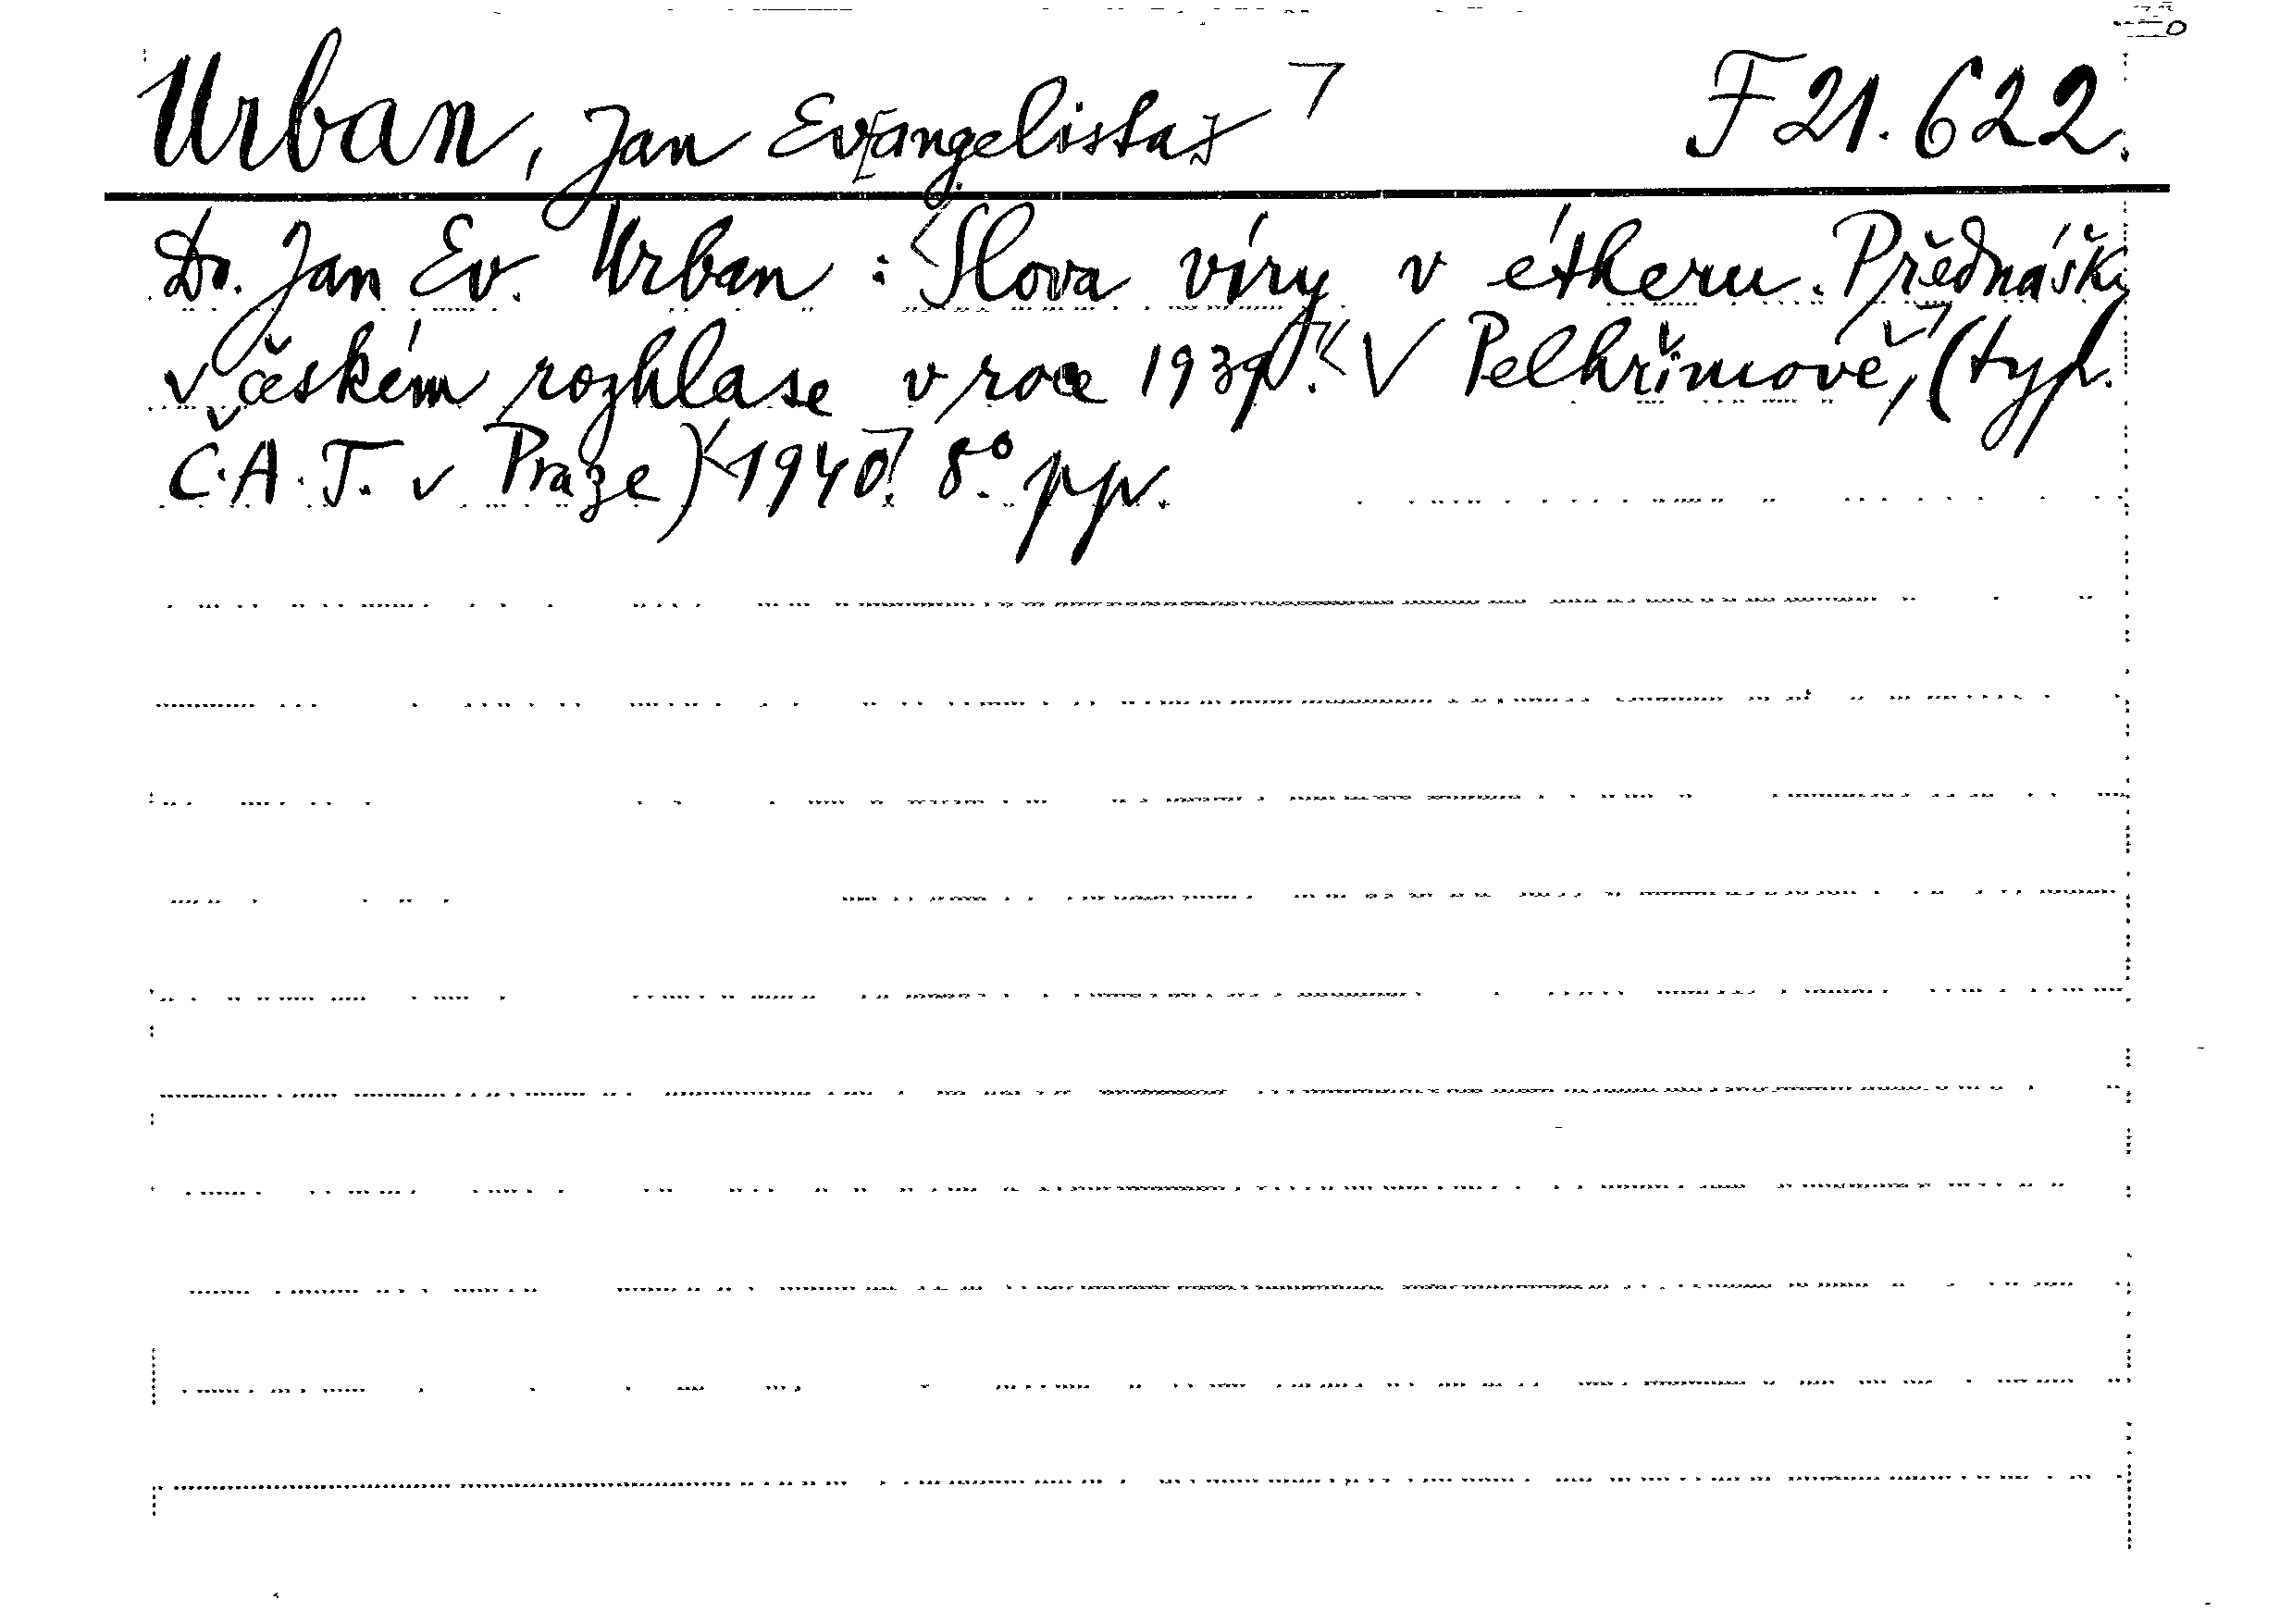 Urban, Jan Ev[angelista] F 21.622.
Dr. Jan Ev. Urban: Slova víry v étheru. Přednášky
v českém rozhlase v roce 1939. V Pelhřimově, (typ.
Č.A.T. v Praze) 1940. 8° pp.